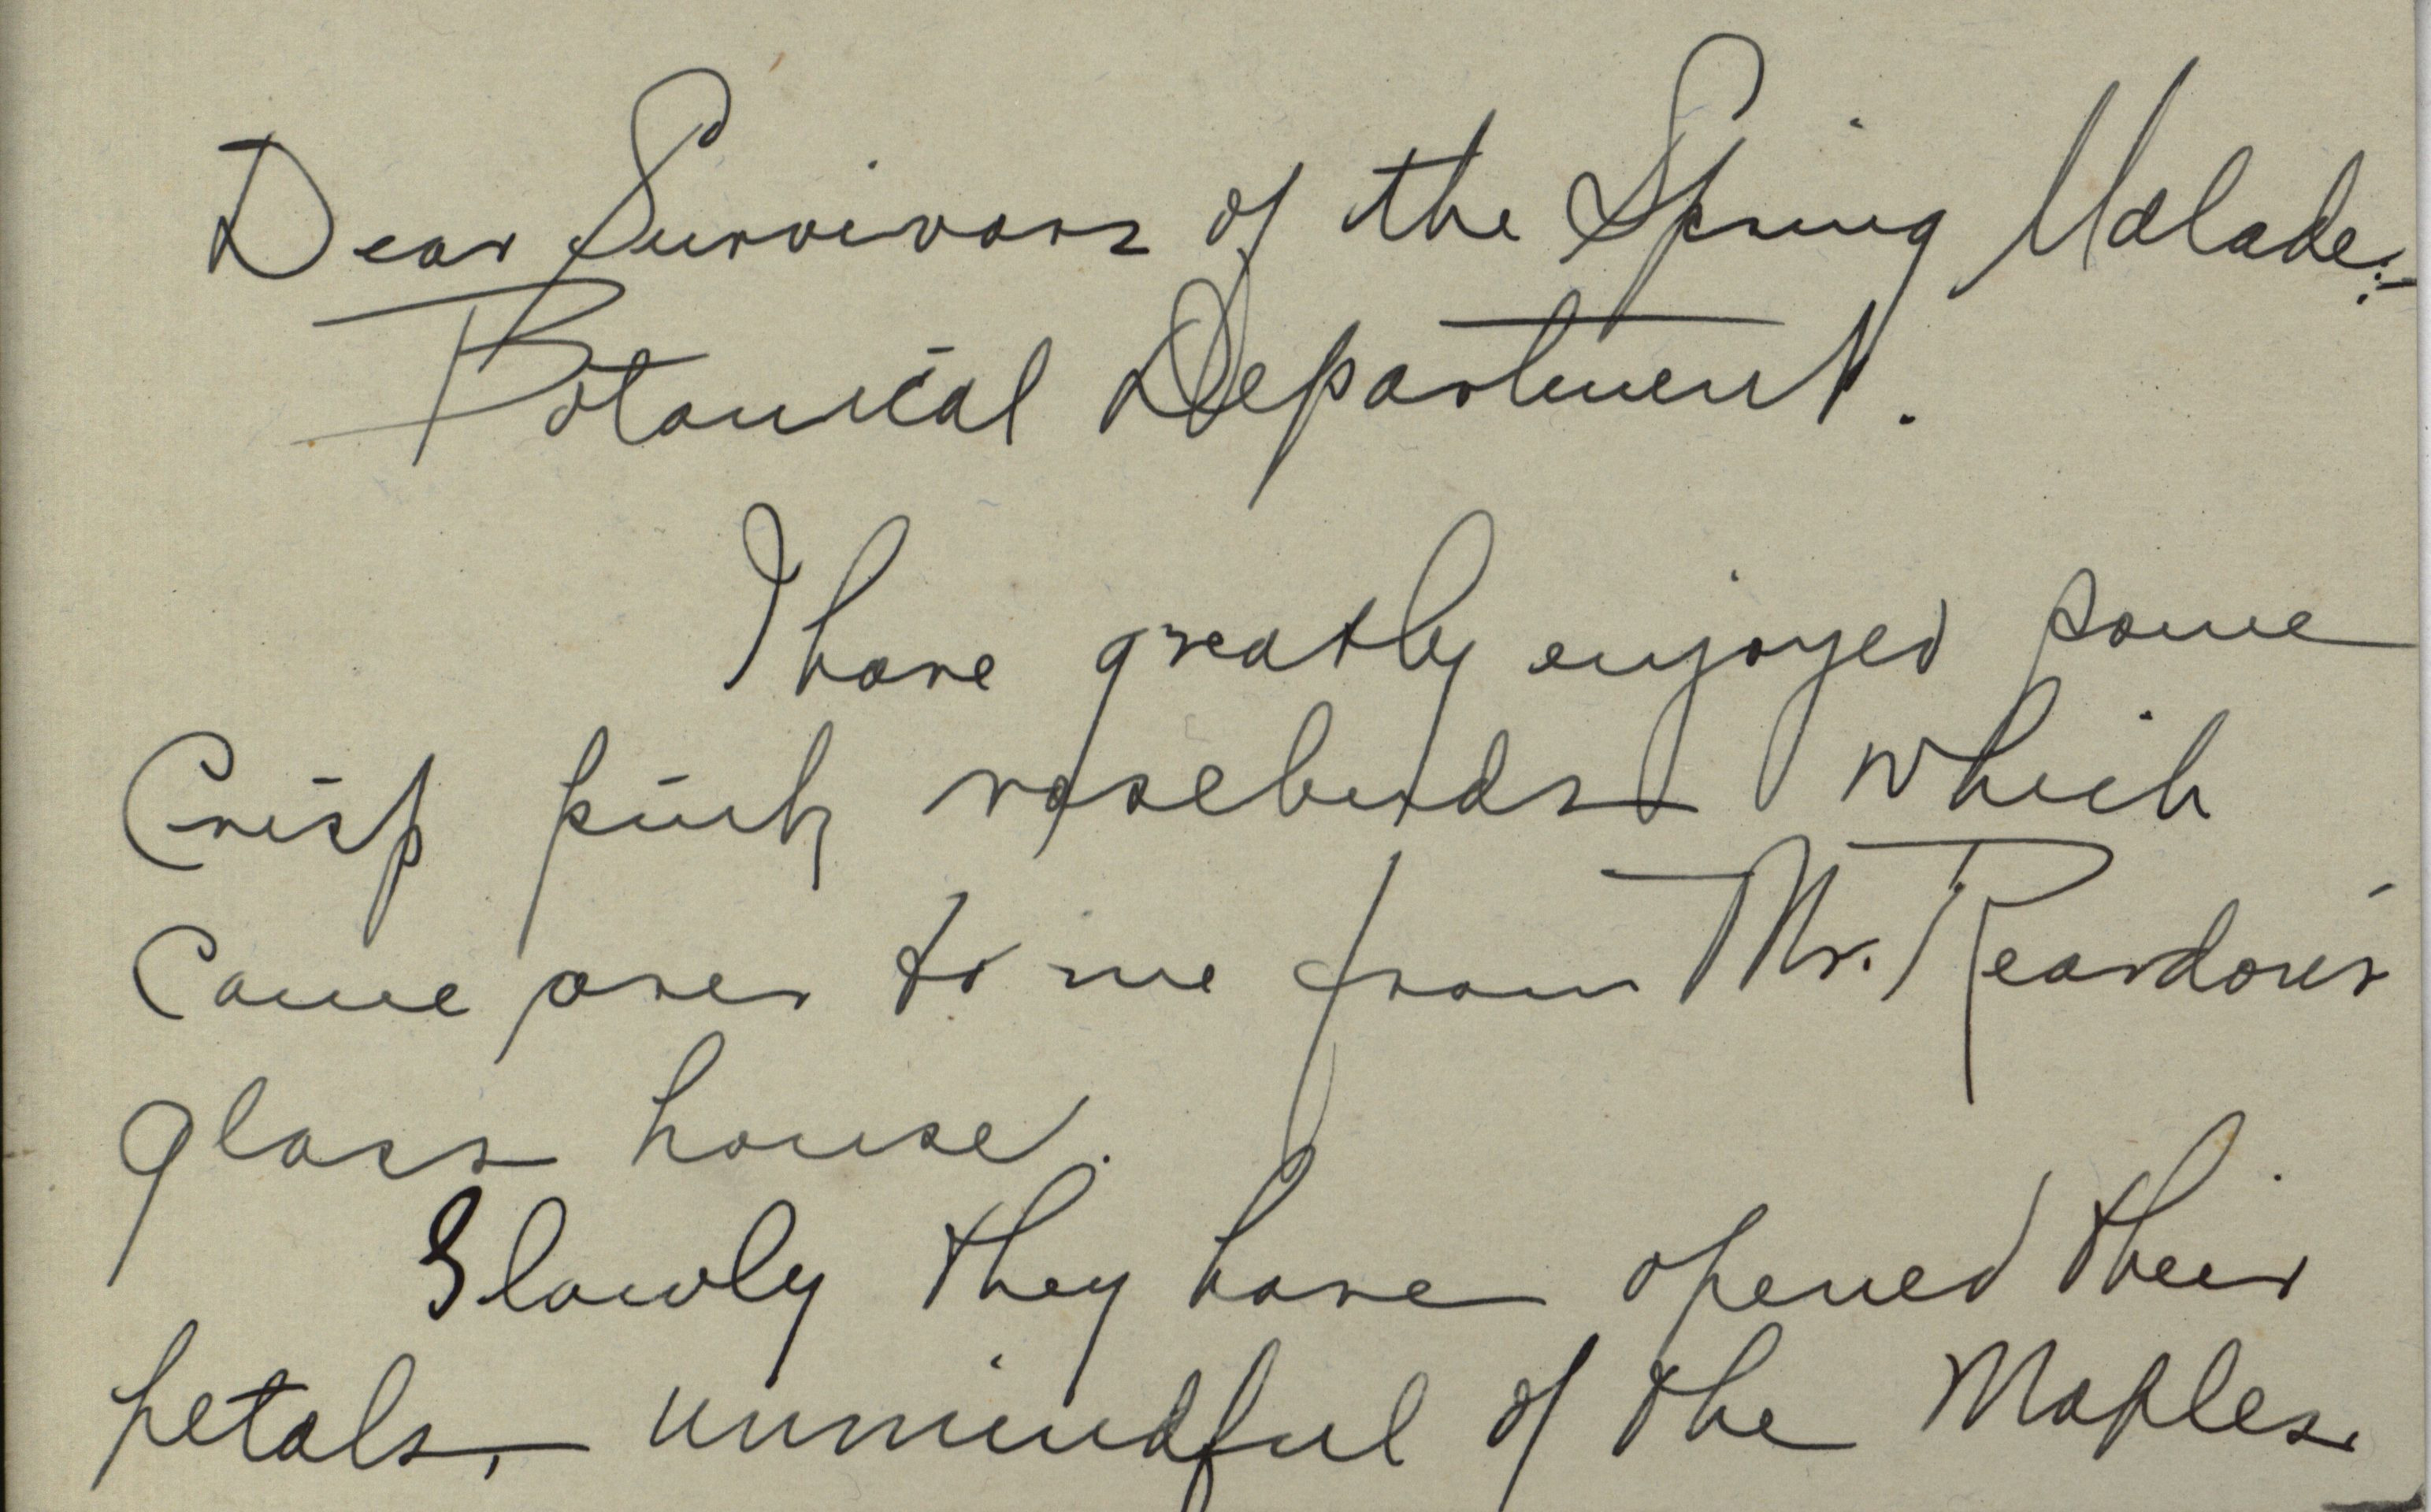 Dear Survivors of the Spring Malade:-
Botanical Department.
I have greatly enjoyed some
Crisp pink rosebuds which
Came over to me from Mr. Reardon's
glass house.
Slowly they have opened their
petals, unmindful of the Maples.